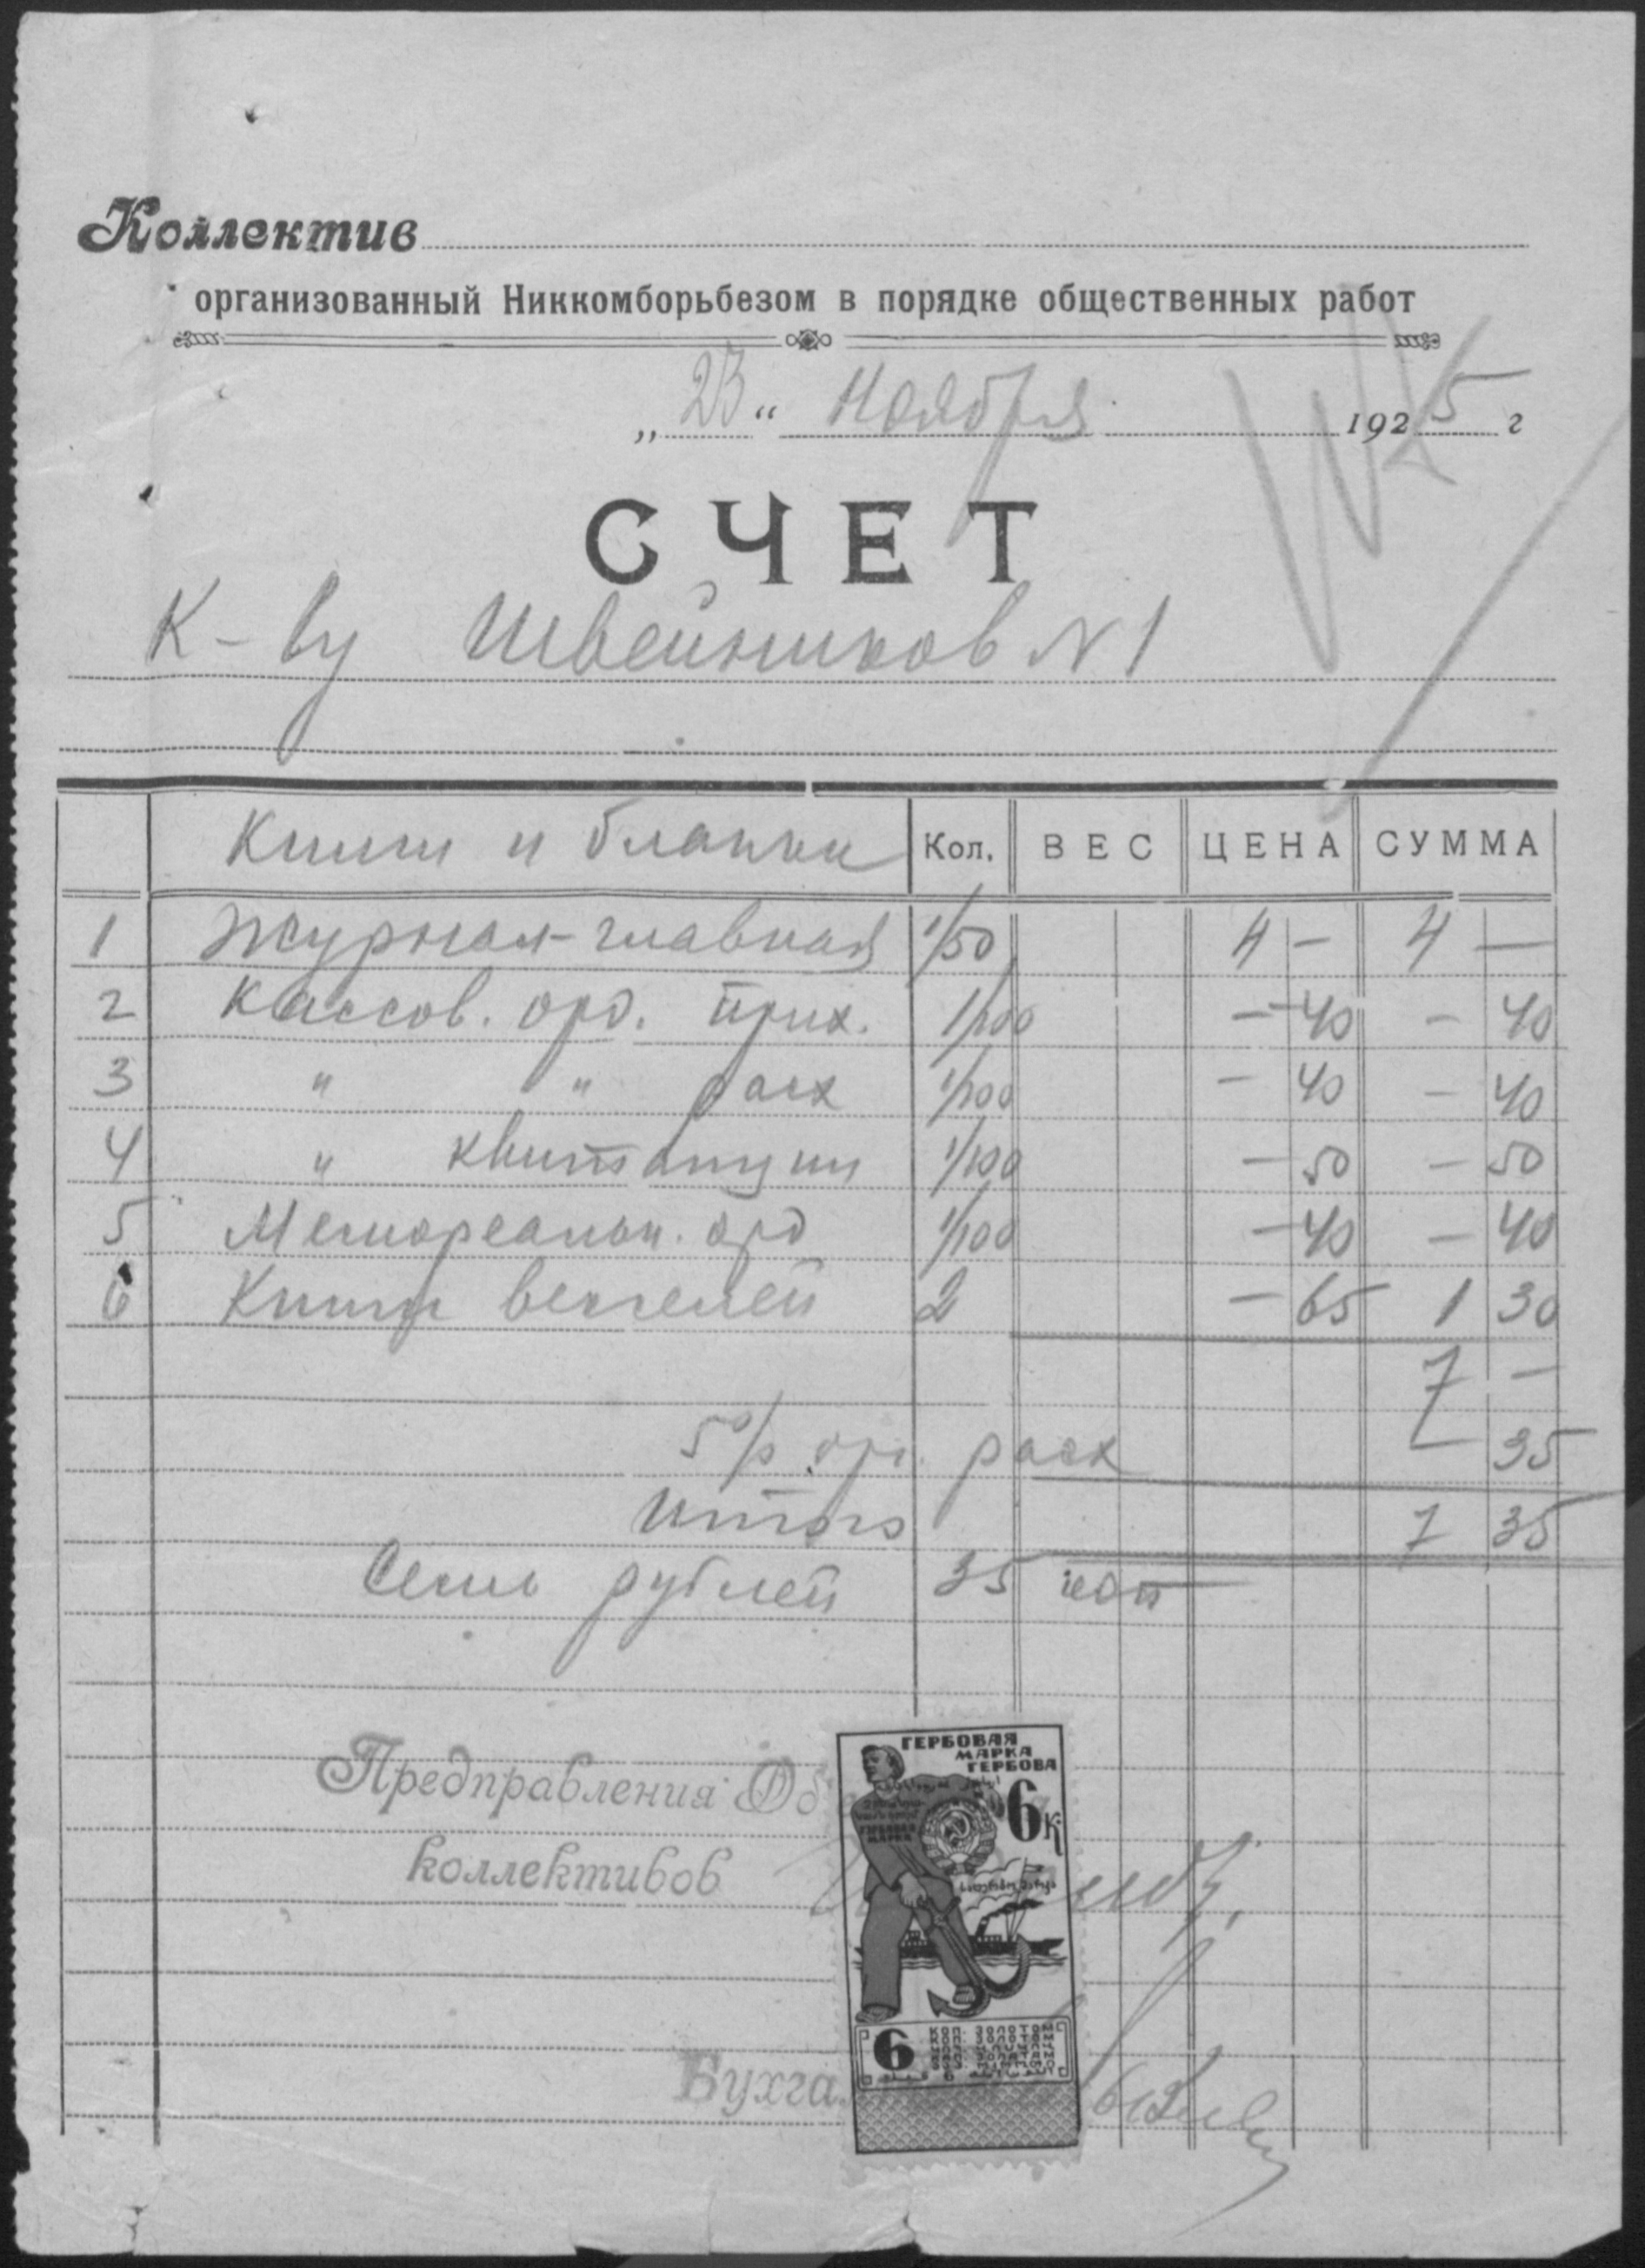 Коллектив
организованный Никкомборьбезом в порядке общественных работ
„23“ Ноября 1925 г
СЧЕТ
К-ву Швейников N1
Книги и бланки Кол. ВЕС ЦЕНА СУММА
1 Журнал-главная 1/50 4 — 4 —
2 Кассов. орд. прих. 1/100 — 40 — 40
3 " " расх 1/100 — 40 — 40
4 " квитанции 1/100 — 50 — 50
5 Мемореальн. орд 1/100 — 40 — 40
6 Книги векселей 2 — 65 1 30
7 —
5% орг. расх — 35
Итого 7 35
Семь рублей 35 коп
Предправления Об
коллективов
Бухга
ГЕРБОВАЯ
МАРКА
ГЕРБОВА
6 К.
6